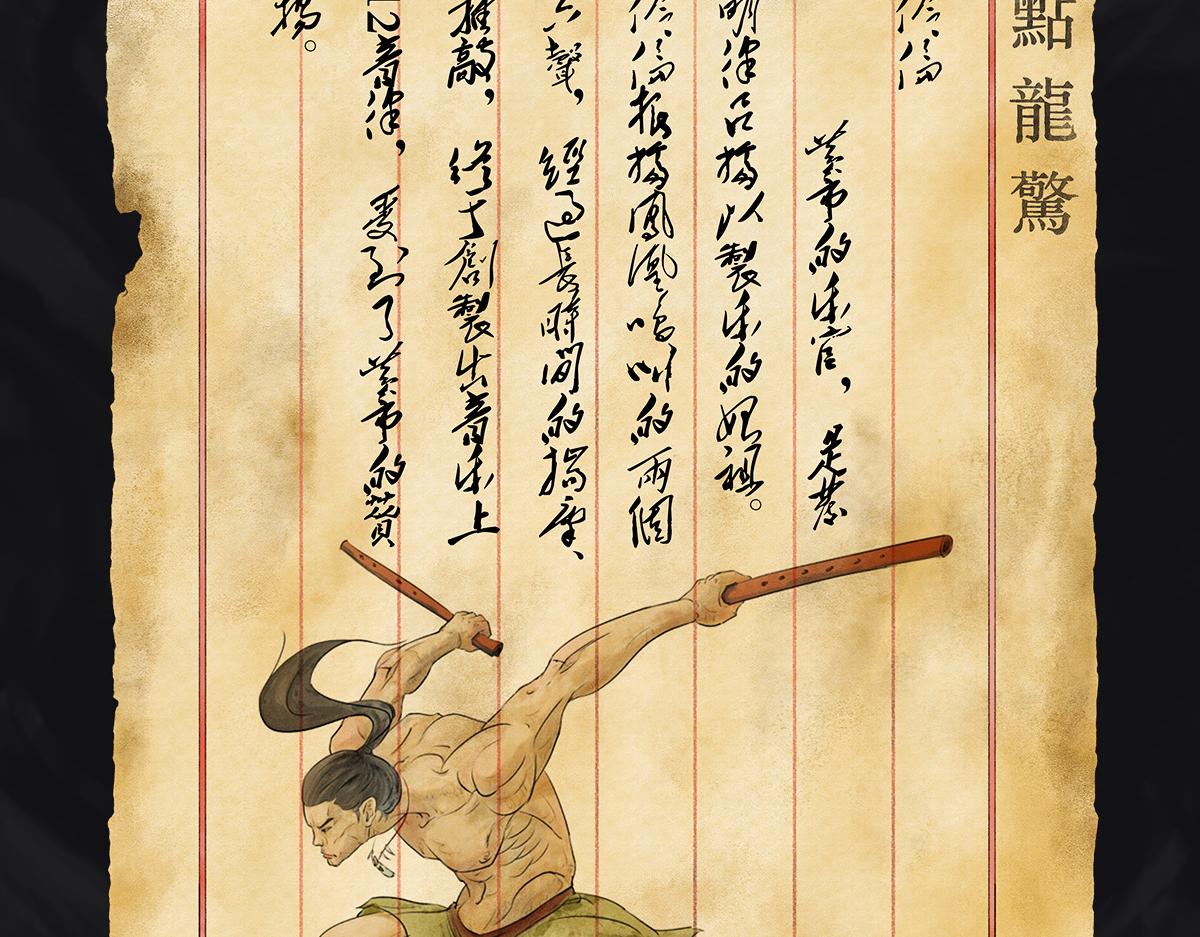 點龍驚
伶倫
黃帝的樂官，是發
明律呂據以製樂的始祖。
伶倫根據鳳凰鳴叫的兩個
六聲，經過長時間的揣摩、
推敲，終于創製出音樂上
12音律，受到了黃帝的贊
揚。